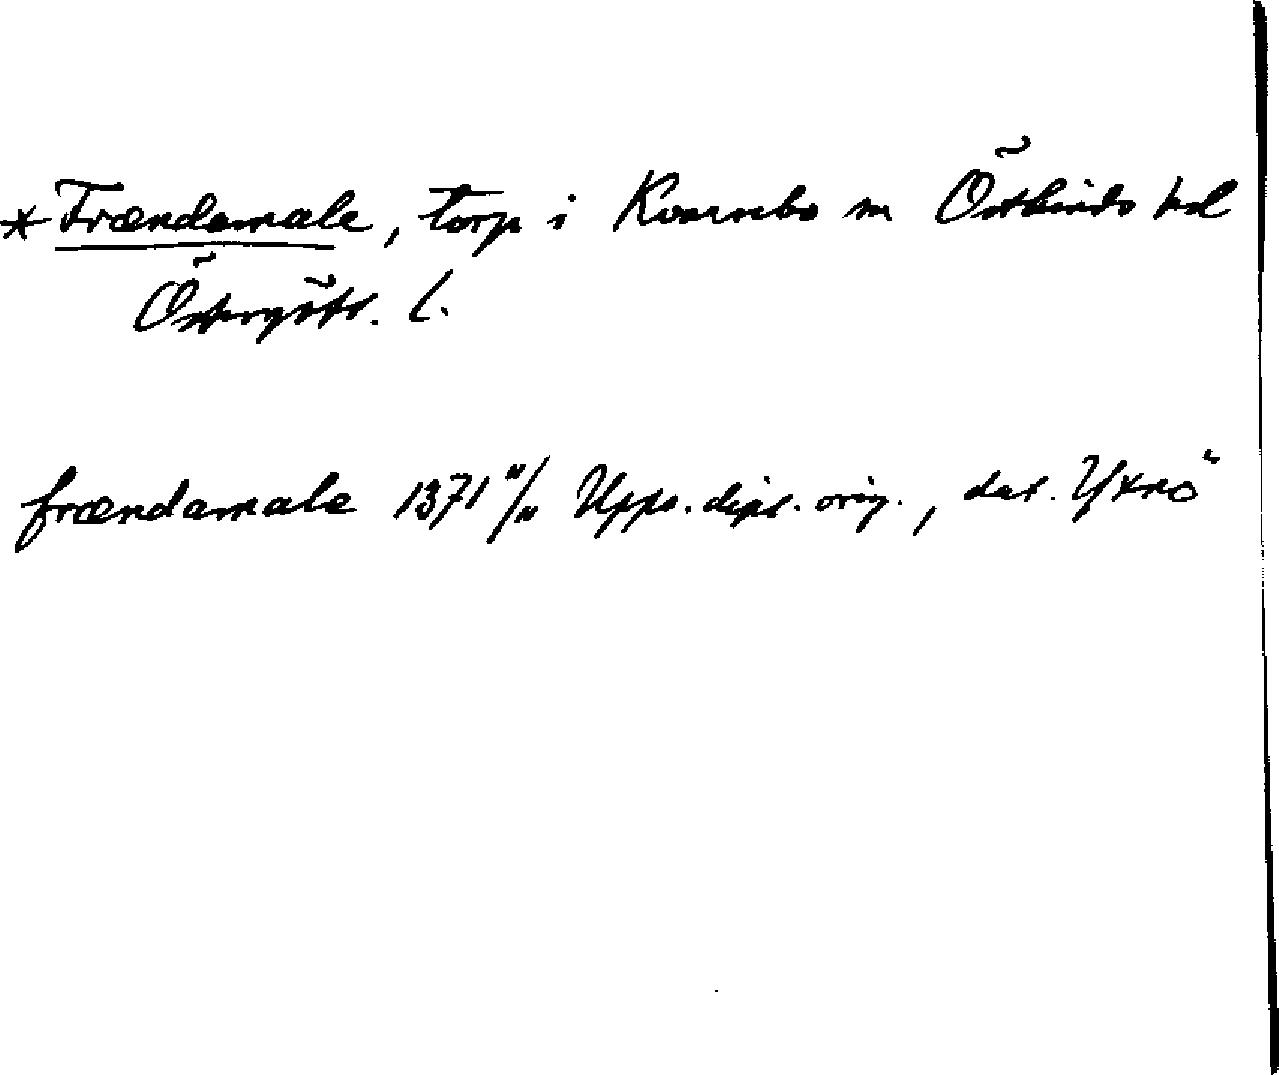 *Frændamale, torp i Kvarsebo sn Östkinds hd
Östergötl. l.
frændamale 1371 11/11 Upps. dipl. orig., dat. Yxnö